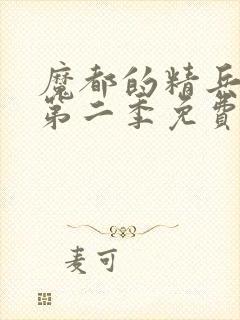 魔都的精兵
第二季免費
麦可